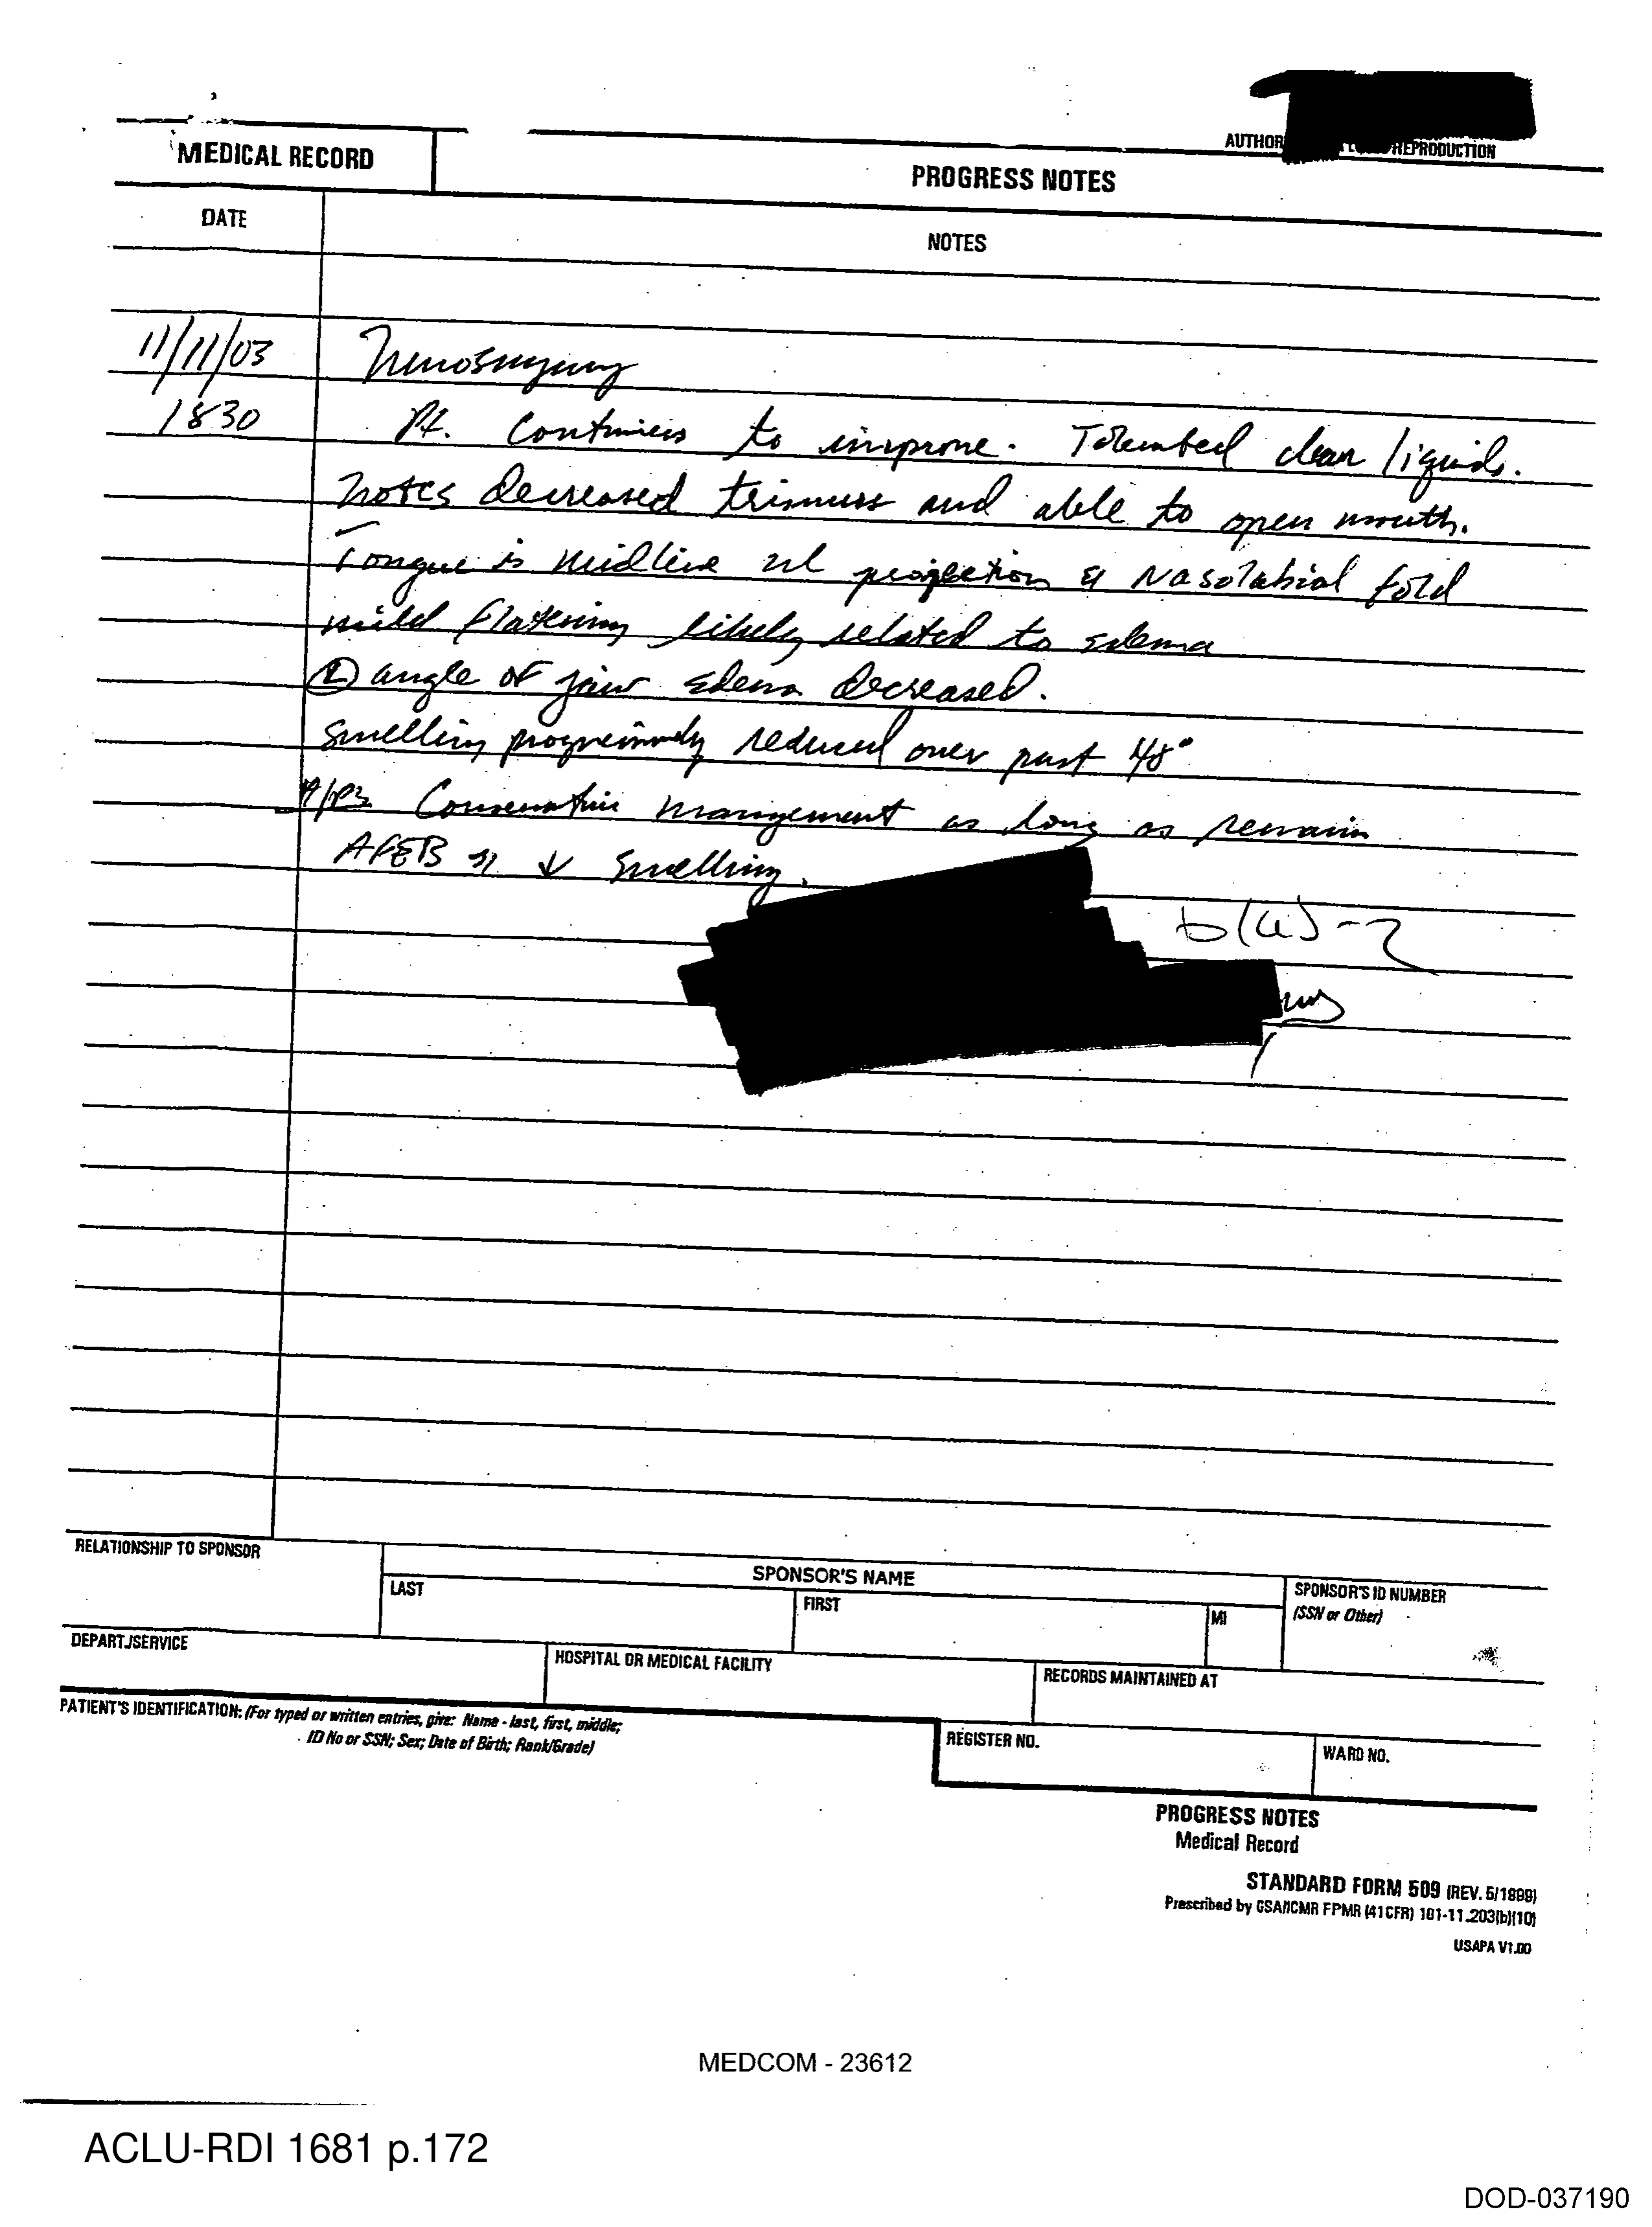 AUTHOR REPRODUCTION
MEDICAL RECORD
PROGRESS NOTES
DATE
NOTES
11/11/03 Neurosurgery
1830 Pt. continues to improve. Tolerated clear liquids.
Notes decreased trismus and able to open mouth.
Tongue is midline projection & Nasolabial fold
mild flatening likely related to edema
(L) angle of jaw edema decreased.
Swelling progressively reduced over past 48°
A/P: Conservative management as long as remain
AFEB ↓ swelling.
b(6)-2
RELATIONSHIP TO SPONSOR
SPONSOR'S NAME
LAST
FIRST
MI
SPONSOR'S ID NUMBER
(SSN or Other)
DEPART./SERVICE
HOSPITAL OR MEDICAL FACILITY
RECORDS MAINTAINED AT
PATIENT'S IDENTIFICATION: (For typed or written entries, give: Name - last, first, middle;
ID No or SSN; Sex; Date of Birth; Rank/Grade)
REGISTER NO.
WARD NO.
PROGRESS NOTES
Medical Record
STANDARD FORM 509 (REV. 5/1999)
Prescribed by GSA/ICMR FPMR (41CFR) 101-11.203(b)(10)
USAPA V1.00
MEDCOM - 23612
ACLU-RDI 1681 p.172
DOD-037190